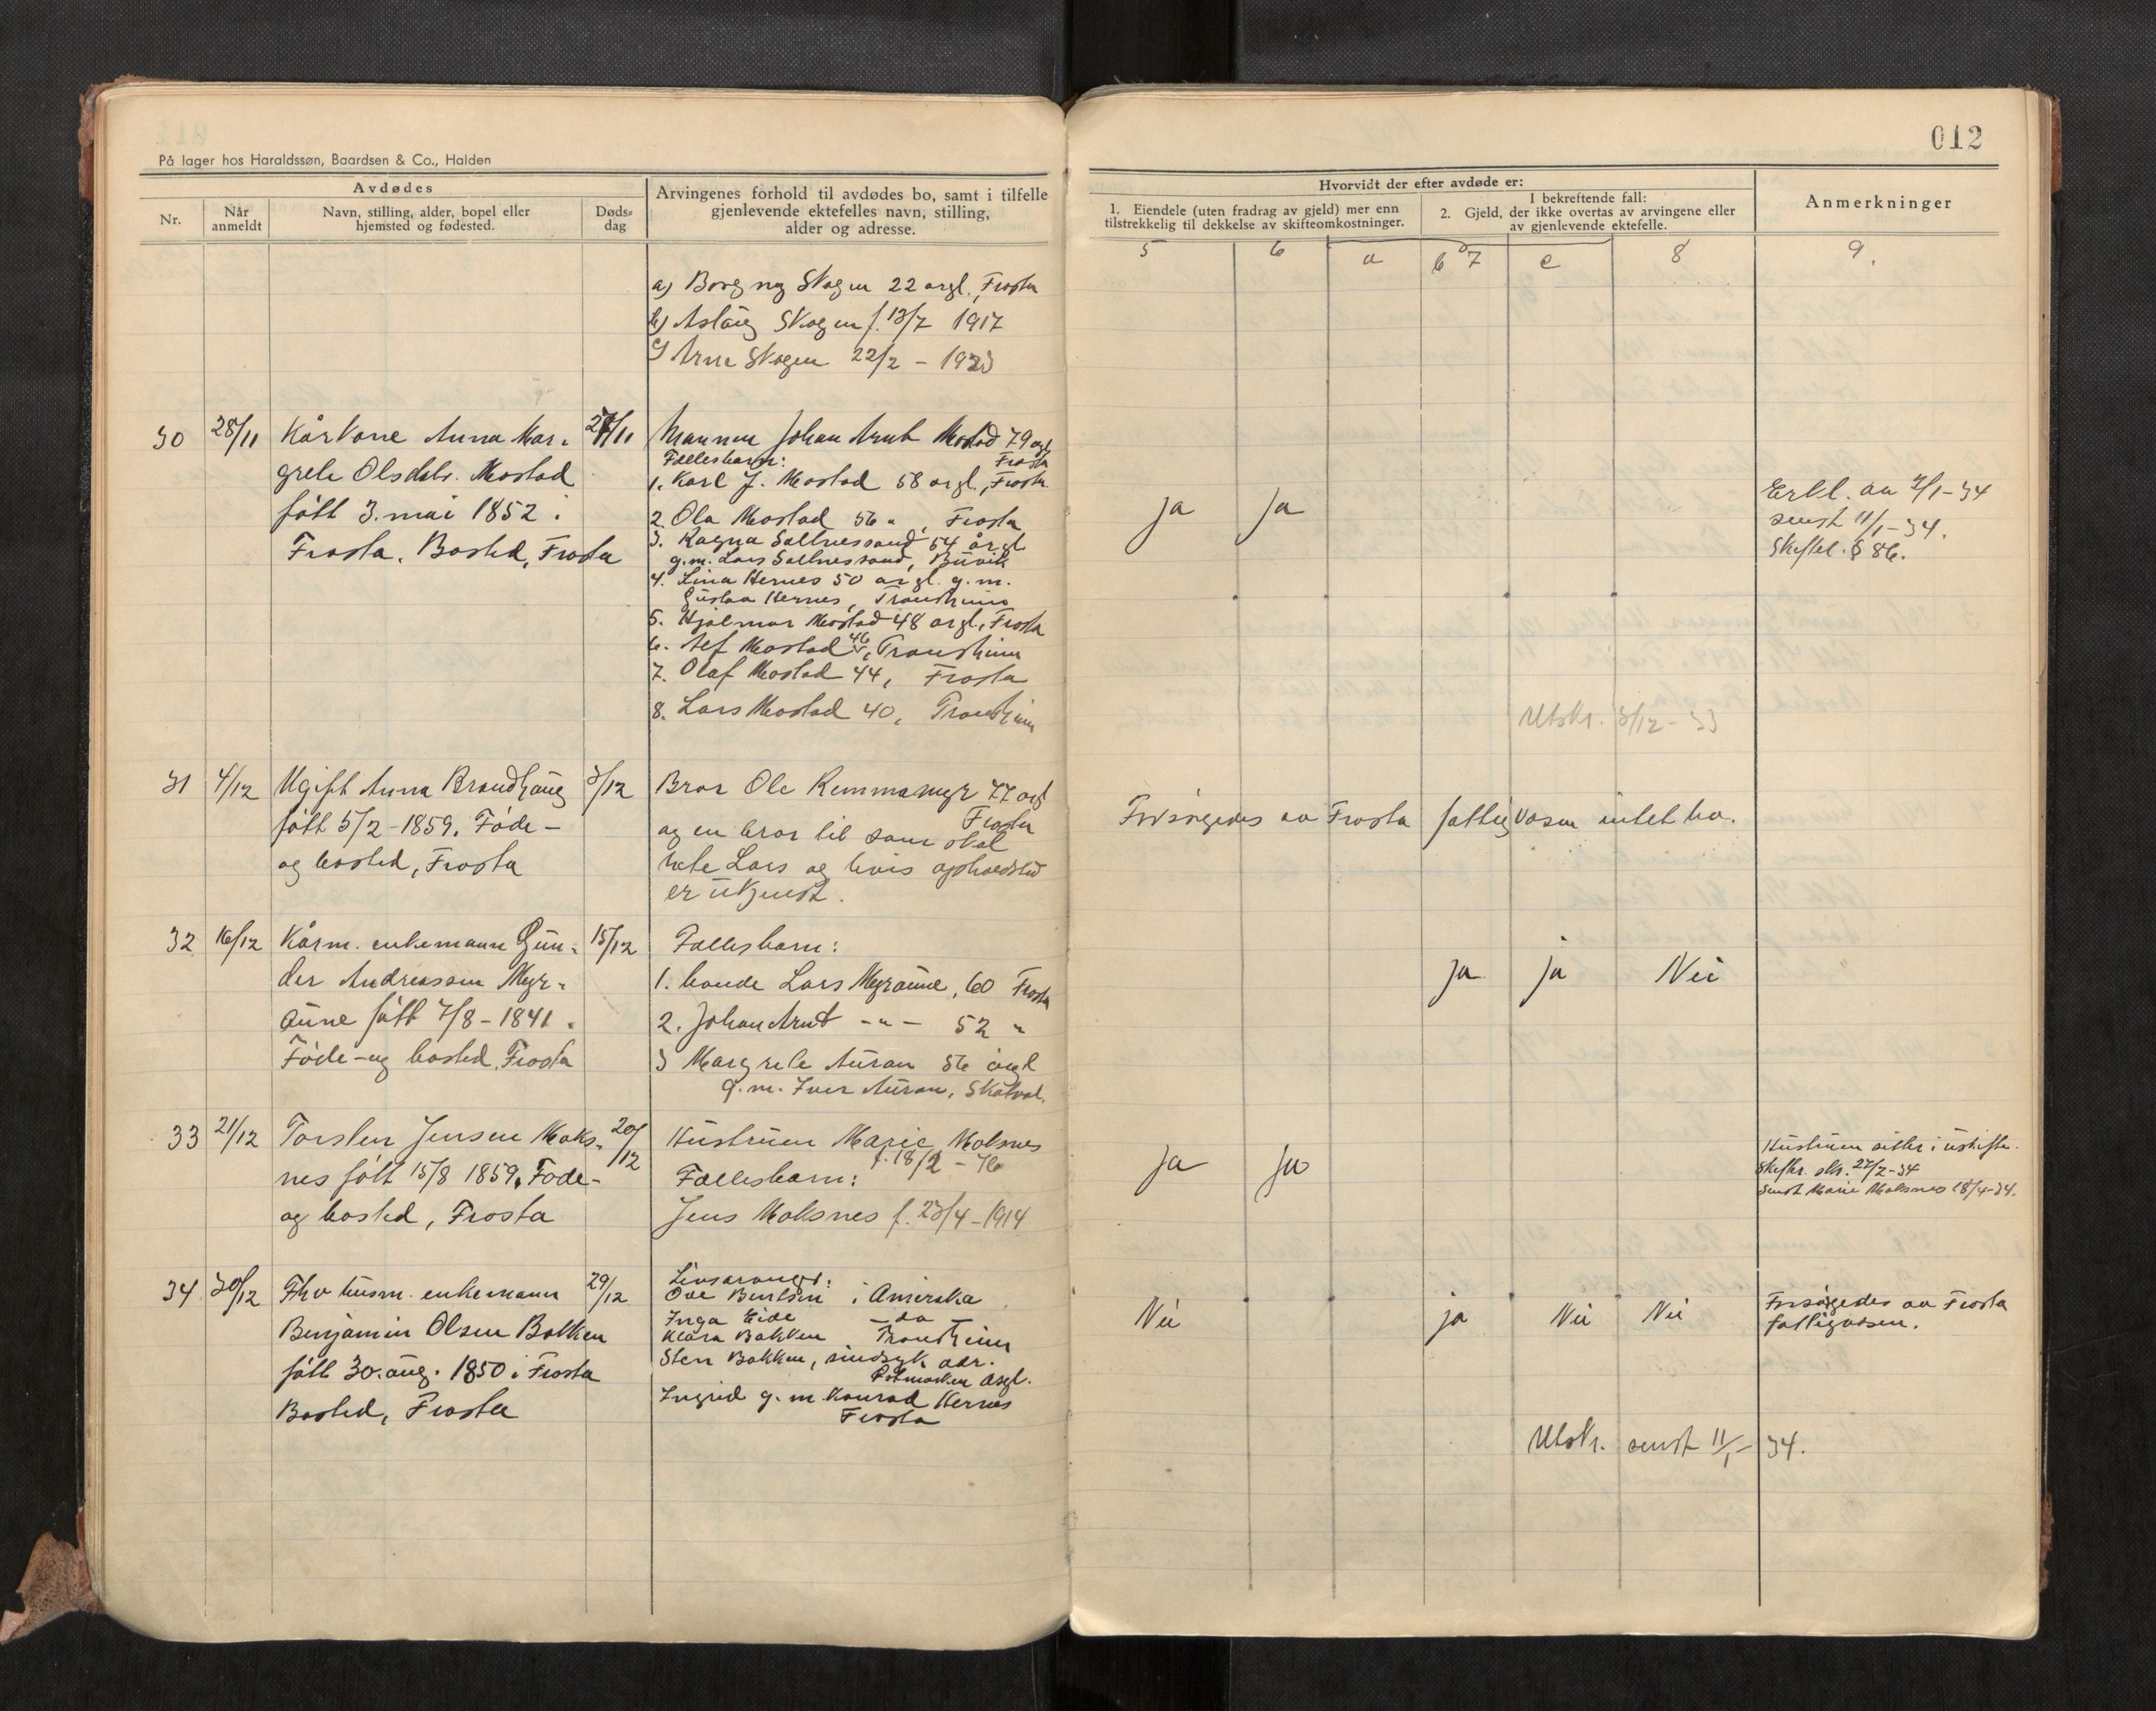 012
På lager hos Haraldssøn, Baardsen & Co., Halden
Avdødes
Nr.
Når
anmeldt
Navn, stilling, alder, bopel eller
hjemsted og fødested.
Døds-
dag
Arvingenes forhold til avdødes bo, samt i tilfelle
gjenlevende ektefelles navn, stilling,
alder og adresse.
Hvorvidt der efter avdøde er:
1. Eiendele (uten fradrag av gjeld) mer enn
tilstrekkelig til dekkelse av skifteomkostninger.
I bekreftende fall:
2. Gjeld, der ikke overtas av arvingene eller
av gjenlevende ektefelle.
Anmerkninger
5 6 a b 7 c 8 9.
a) Borgny Skogen 22 årgl., Frosta
b) Aslaug Skogen f. 13/7 1917
c) Arne Skogen 22/2 - 1923
30 28/11 Kårkone Anna Mar- 27/11
grete Olsdtr. Mostad
født 3. mai 1852 i
Frosta. Bosted, Frosta
Mannen Johan Arnt Mostad 79 årgl
Frosta
Fællesbarn:
1. Karl J. Mostad 58 årgl., Frosta
2. Ola Mostad 56 " , Frosta
3. Ragna Saltnessand 54 årgl
g.m. Lars Saltnessand, Buvik
4. Lina Hernes 50 årgl. g.m.
Gustav Hernes, Trondheim
5. Hjalmar Mostad 48 årgl., Frosta
6. Alf Mostad 46, Trondheim
7. Olaf Mostad 44, Frosta
8. Lars Mostad 40, Trondheim
ja ja
Erkl. av 9/1-34
sendt 11/1-34.
Skiftel. § 86.
Utskr. 3/12-33
31 4/12 Ugift Anna Brandhaug 3/12
født 5/2-1859. Føde-
og bosted, Frosta
Bror Ole Remmamyr 77 årgl
Frosta
og en bror til som skal
hete Lars og hvis opholdssted
er ukjendt.
Forsørgedes av Frosta fattigvæsen intet bo.
32 16/12 Kårm. enkemann Gun- 15/12
der Andreassen Myr-
aune født 7/8-1841.
Føde-og bosted, Frosta
Fællesbarn:
1. bonde Lars Myraune, 60 Frosta
2. Johan Arnt -"- 52 "
3 Margrete Auran 56 årgl
g.m. Iver Auran, Skatval.
ja ja Nei
33 21/12 Torsten Jensen Moks- 20/12
nes født 15/8 1859. Føde-
og bosted, Frosta
Hustruen Marie Moksnes
f. 18/2-76
Fællesbarn:
Jens Moksnes f. 23/4-1914
ja ja
Hustruen sitter i uskifte.
Skiftr. skr. 27/2-34
Sendt Marie Moksnes 18/4-34.
34 30/12 Fhv husm. enkemann 29/12
Benjamin Olsen Bakken
født 30. aug. 1850 i Frosta
Bosted, Frosta
Livsarvinger:
Ove Bentsen i Amerika
Inga Eide - do -
Klara Bakken Trondheim
Sten Bakken, sindsyk adr.
Rotmoken asyl.
Ingrid g.m. Konrad Hernes
Frosta
Nei ja Nei Nei
Forsørgedes av Frosta
fattigvæsen.
Utskr. sendt 11/1-34.